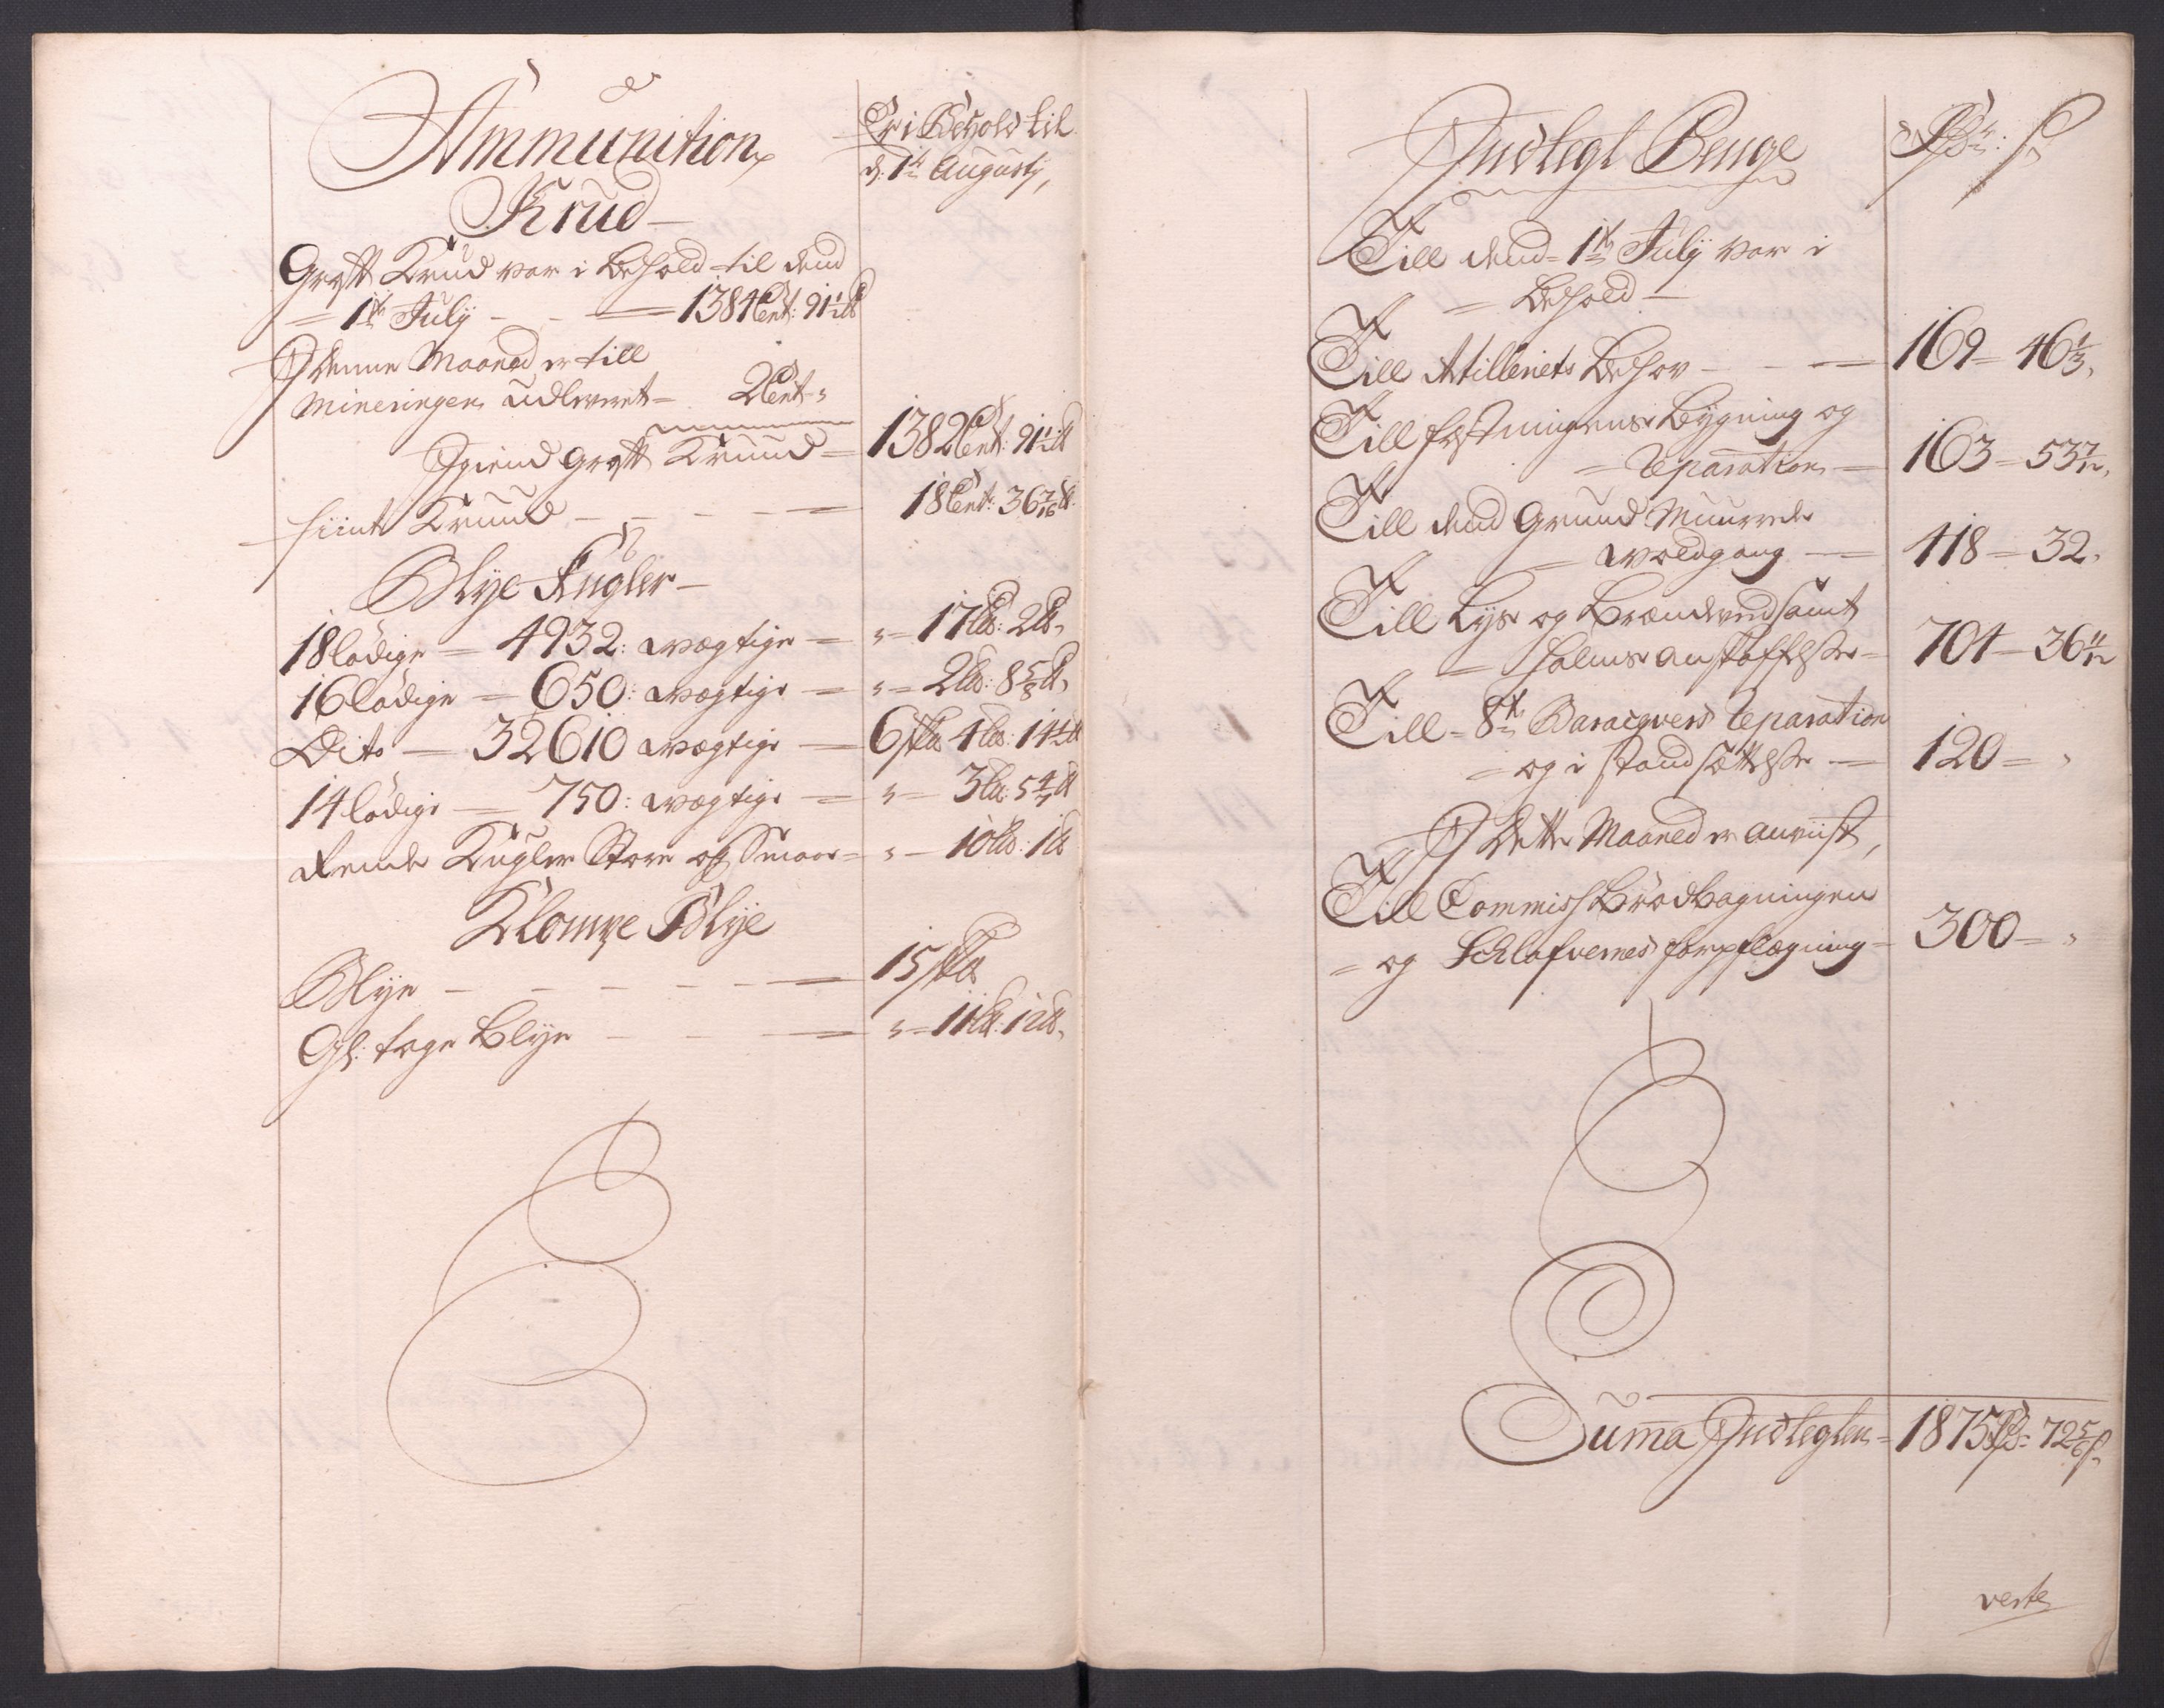 Ammunition
Er i Behold til
d: 1te Augustj,
Krud
Groft Krud var i behold til dend
1te July - 1384 Cent: 91½ ℔
I denne Maaned er till
Mineringen udleveret = 2 Cent
Igiend groft Kruud = 1382 Cent: 91½ ℔
fiint Kruud - 18 Cent: 36 7/16 ℔.
Blye Kugler
18 lødige = 4932: wægtige = " = 17 L℔: 2 ℔,
16 lødige = 650: wægtige = " = 2 L℔: 8 5/8 ℔,
Dito = 32610 wægtige = 6 sk℔ 4 L℔: 14½ ℔
14 lødige = 750: wægtige = " = 3 L℔: 5 4/7 ℔
Kugler Store og Smaae = " = 10 L℔: 1 ℔
Klompe Blye
Blye - 15 sk℔
Gl: tage Blye - " = 11 L℔: 12 ℔,
Indlegt Penge
Rdr: s
Till dend = 1te July var i
= behold -
Till Artilleriets behov - 169 = 46 1/3,
Till festningens bygning og
= Reparation = 163 = 53 7/12,
Till dend Grund Muurede
= woldgang = 418 = 32,
Till Lys og brændeved samt
= halms anskaffelse = 704 = 36 11/12
Till = 8te Baracqvers Reparation
= og i stand sættelse = 120 = "
I dette Maaned er anviist,
Till Commiss brødbagningen
= og Schlafvernes forpflægning = 300 = "
Suma Indlegten = 1875 Rd: 72 5/6 s.
verte